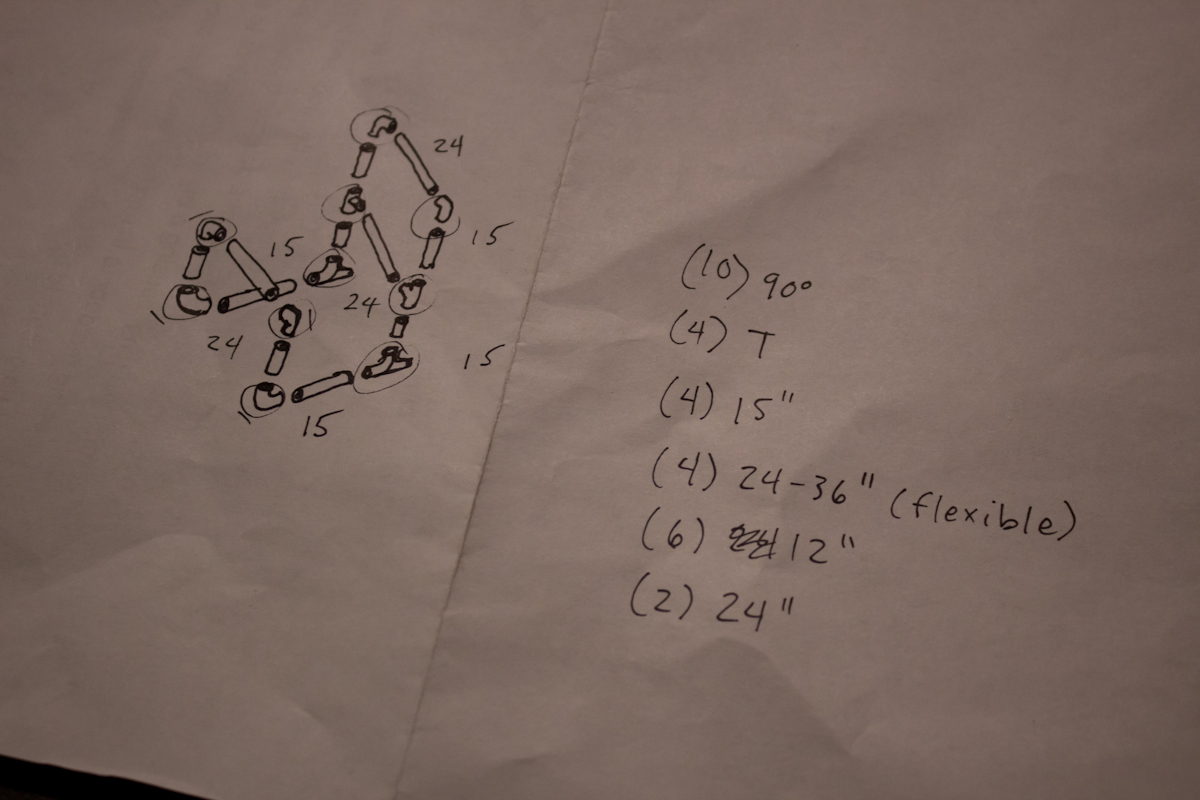 24
15
15
24
24
15
15
(10) 90°
(4) T
(4) 15"
(4) 24-36" (flexible)
(6) 12"
(2) 24"